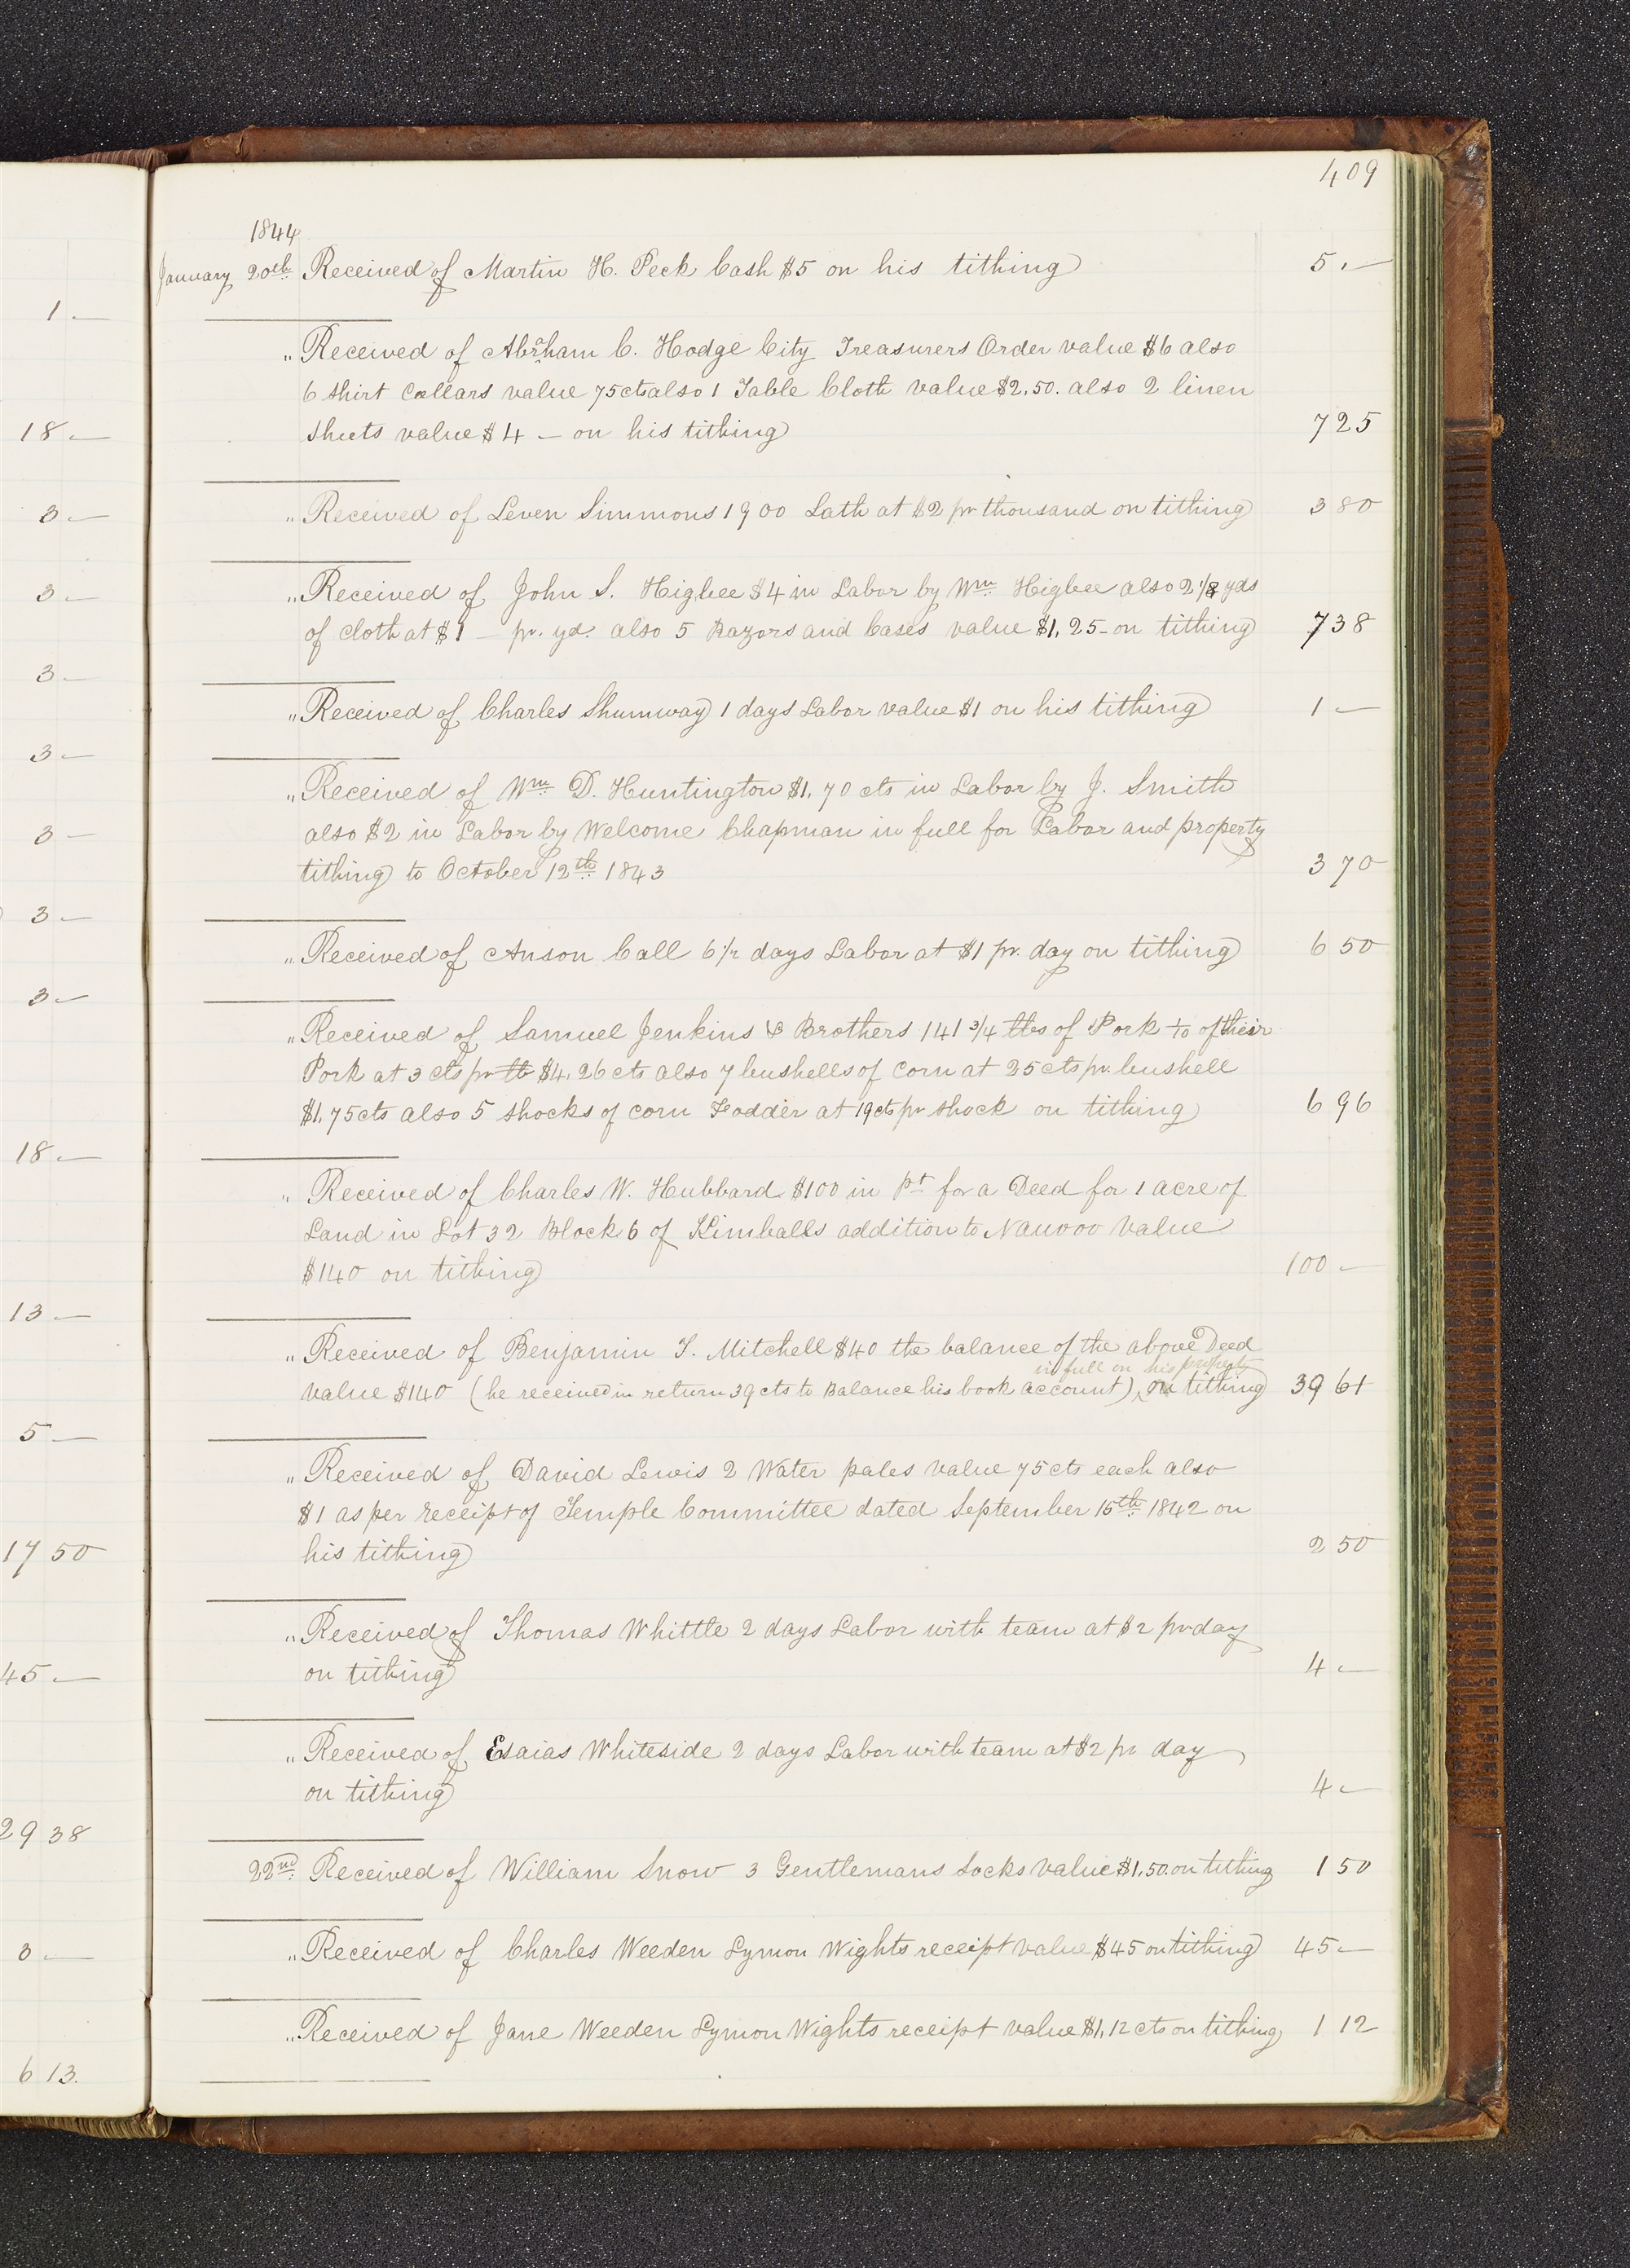 409
1844
January 20th Received of Martin H. Peck Cash $5 on his tithing 5.—
" Received of Abraham C. Hodge City Treasurers Order value $6 also
6 shirt Collars value 75cts also 1 Table Cloth value $2.50. also 2 linen
sheets value $4 — on his tithing 7 25
" Received of Leven Simmons 1900 Lath at $2 pr thousand on tithing 3 80
" Received of John S. Higbee $4 in Labor by Wm. Higbee also 2 1/8 yds
of cloth at $1 — pr. yd. also 5 Razors and Cases value $1,25 - on tithing 7 38
" Received of Charles Shumway 1 days Labor value $1 on his tithing 1 —
" Received of Wm. D. Huntington $1,70 cts in Labor by J. Smith
also $2 in Labor by Welcome Chapman in full for Labor and property
tithing to October 12th. 1843 3 70
" Received of Anson Call 6 1/2 days Labor at $1 pr. day on tithing 6 50
" Received of Samuel Jenkins & Brothers 141 3/4 lbs of Pork to of their
Pork at 3 cts pr lb $4,26 cts also 7 bushells of Corn at 25 cts pr. bushell
$1,75cts also 5 shocks of corn Fodder at 19cts pr shock on tithing 6 96
" Received of Charles W. Hubbard $100 in pt for a Deed for 1 acre of
Land in Lot 32 Block 6 of Kimballs addition to Nauvoo value
$140 on tithing 100 —
" Received of Benjamin T. Mitchell $40 the balance of the above Deed
in full on his property
value $140 (he received in return 39 cts to Balance his book account) on tithing 39 61
" Received of David Lewis 2 Water pales value 75 cts each also
$1 as per receipt of Temple Committee dated September 15th. 1842 on
his tithing 2 50
" Received of Thomas Whittle 2 days Labor with team at $2 pr day
on tithing 4 —
" Received of Esaias Whiteside 2 days Labor with team at $2 pr day
on tithing 4 —
22nd. Received of William Snow 3 Gentlemans Socks value $1,50. on tithing 1 50
" Received of Charles Weeden Lymon Wights receipt value $45 on tithing 45 —
" Received of Jane Weeden Lymon Wights receipt value $1,12 cts on tithing 1 12
1 —
18 —
3 —
3 —
3 —
3 —
3 —
3 —
3 —
18 —
13 —
5 —
17 50
45 —
29 38
3 —
6 13.